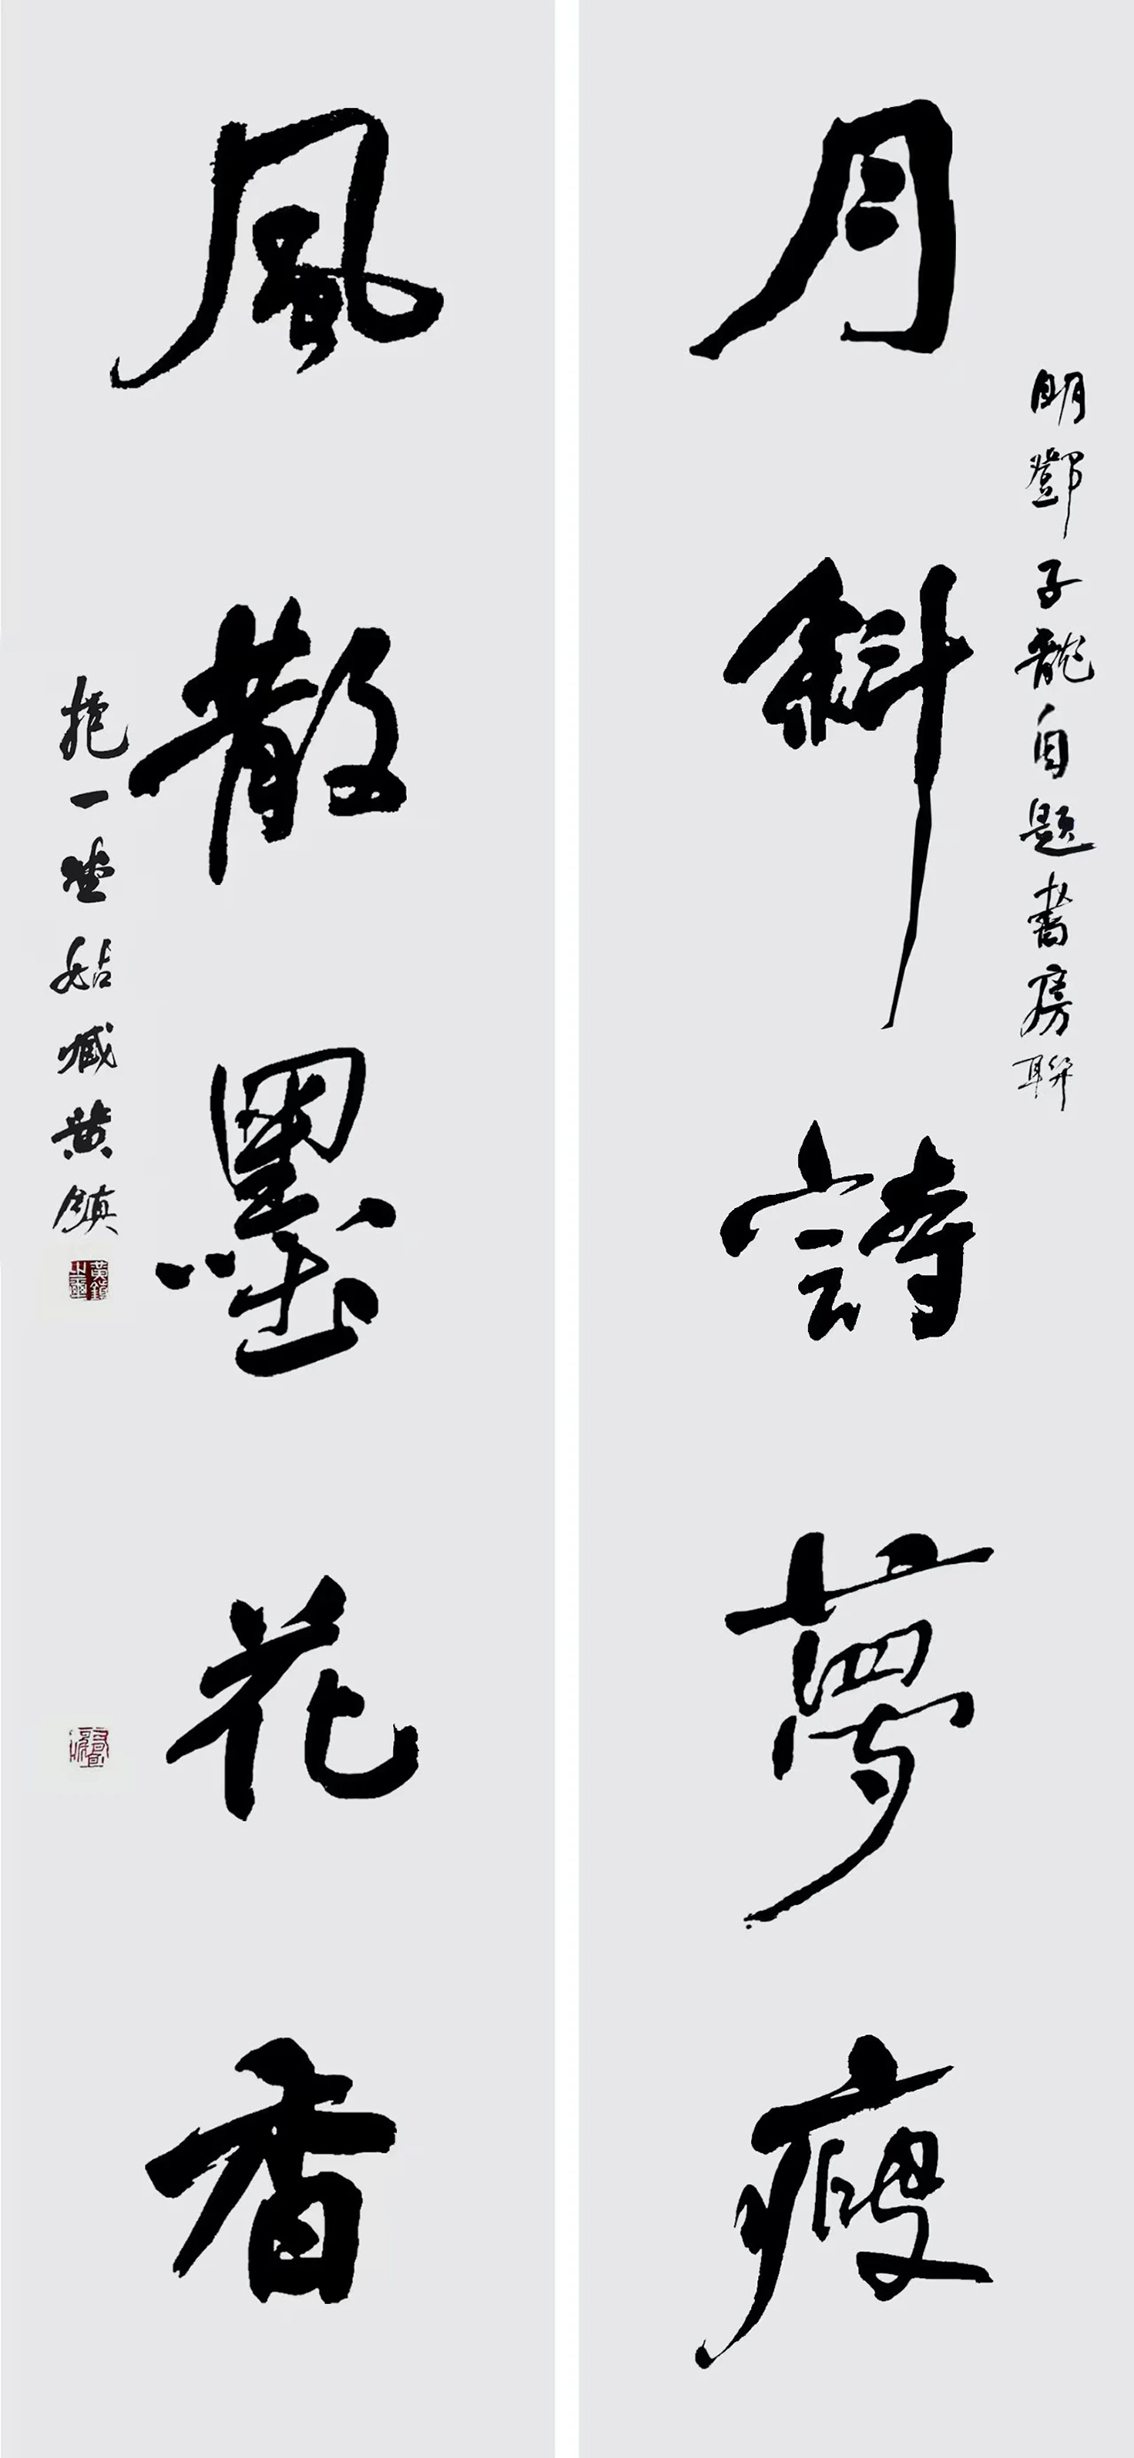 月斜詩夢瘦
明鄧子龍自題書房聯
風散墨花香
抱一堂姑臧黄鎮